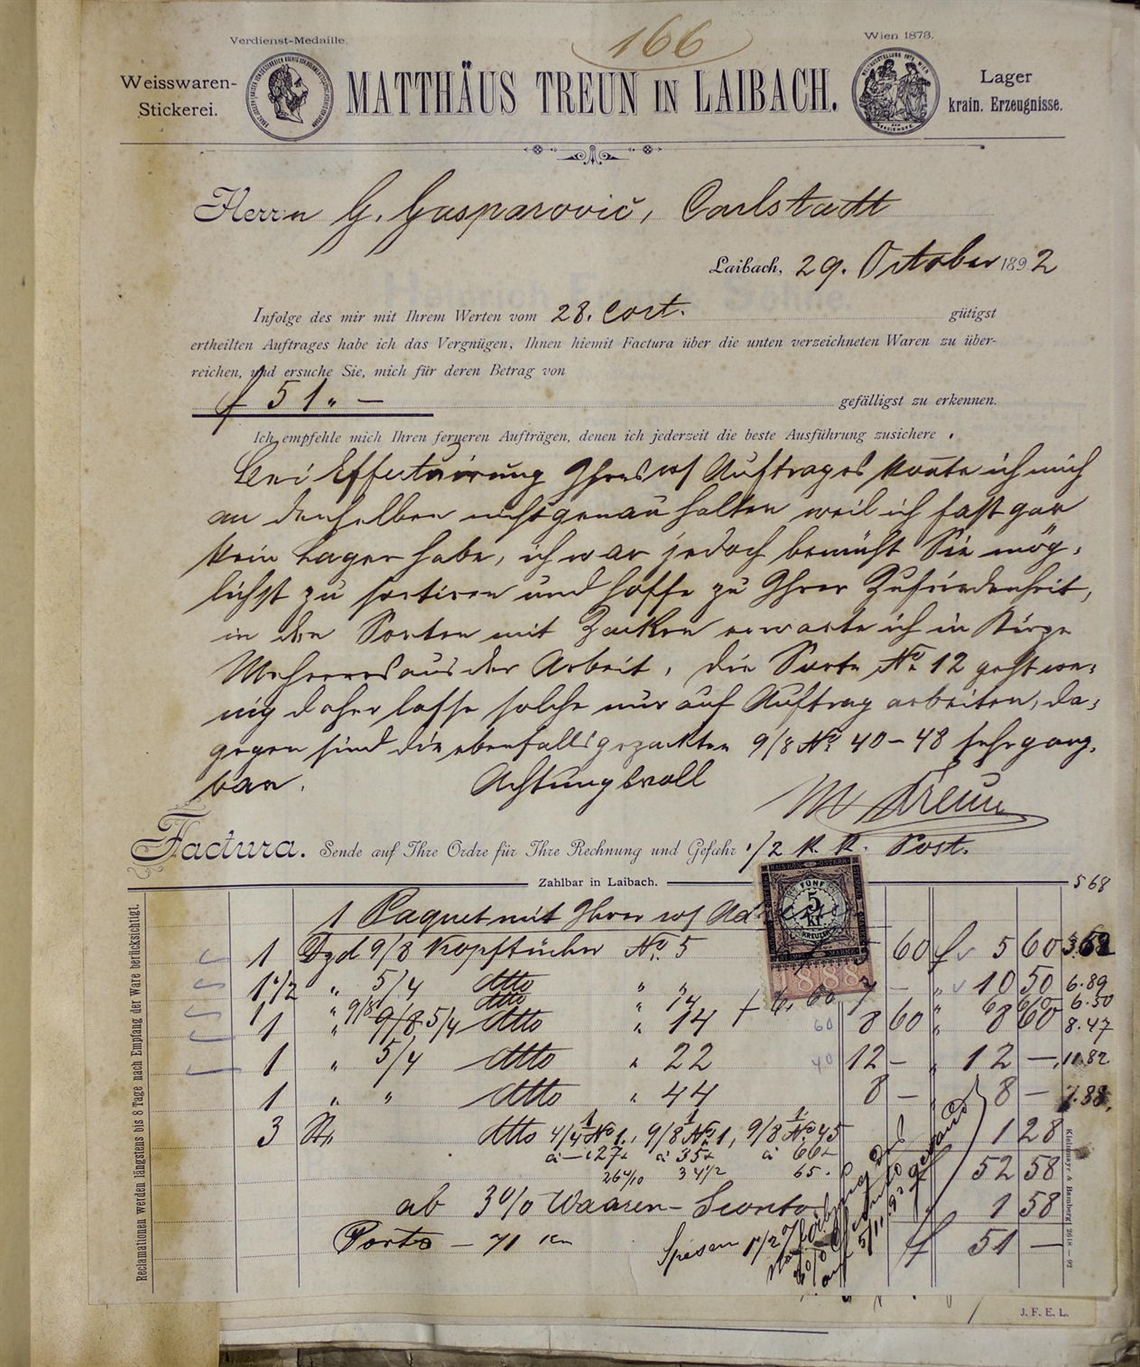 166
Verdienst-Medaille.
Wien 1873.
Weisswaren-
Stickerei.
MATTHÄUS TREUN IN LAIBACH.
Lager
krain. Erzeugnisse.
Herrn G. Gasparovič, Carlstadt
Laibach, 29. October 1892
Infolge des mir mit Ihrem Werten vom 28. cort. gütigst
ertheilten Auftrages habe ich das Vergnügen, Ihnen hiemit Factura über die unten verzeichneten Waren zu über-
reichen, und ersuche Sie, mich für deren Betrag von
f 51 „ —
gefälligst zu erkennen.
Ich empfehle mich Ihren ferneren Aufträgen, denen ich jederzeit die beste Ausführung zusichere.
Bei Effectuirung Ihres w/ Auftrages konnte ich mich
an denselben nicht genau halten weil ich fast gar
kein Lager habe, ich war jedoch bemüht Sie mög-
lichst zu sortiren und hoffe zu Ihrer Zufriedenheit,
in den Sorten mit Zacken erwarte ich in Kürze
Mehreres aus der Arbeit, die Sorte № 12 geht we-
nig daher lasse solche nur auf Auftrag arbeiten, da-
gegen sind die ebenfalls gezackten 9/8 № 40 – 48 sehr gang-
bar. Achtungsvoll
M Treun
Factura. Sende auf Ihre Ordre für Ihre Rechnung und Gefahr k. k. Post.
Zahlbar in Laibach.
568
1 Paquet mit Ihrer w/
FÜNF
5
Kr.
KREUZER
1888
1 Dzd 9/8 Kopftücher № 5 60 f 5 60
1 1/2 „ 5/4 dtto „ „ 7 — „ 10 50 6.89
„ 9/8 dtto „ 14 6.50
1 „ 9/8 5/4 dtto „ 14 60 8 60 „ 8 60 8.47
1 „ 5/4 dtto „ 22 40 12 — „ 12 — 11.82
1 „ „ dtto „ 44 8 — „ 8 — 7.88
3 St. dtto 4/4 № 1., 9/8 № 1, 9/8 № 45 1 28
à — 27 à 35 à 66
26 4/10 34 1/2 65.
f 52 58
ab 3% Waaren-Sconto 1 58
Porto — 71 Kr f 51 —
Spesen 1 1/2 %
Reclamationen werden längstens bis 8 Tage nach Empfang der Ware berücksichtigt.
Kleinmayr & Bamberg!
J. F. E. L.